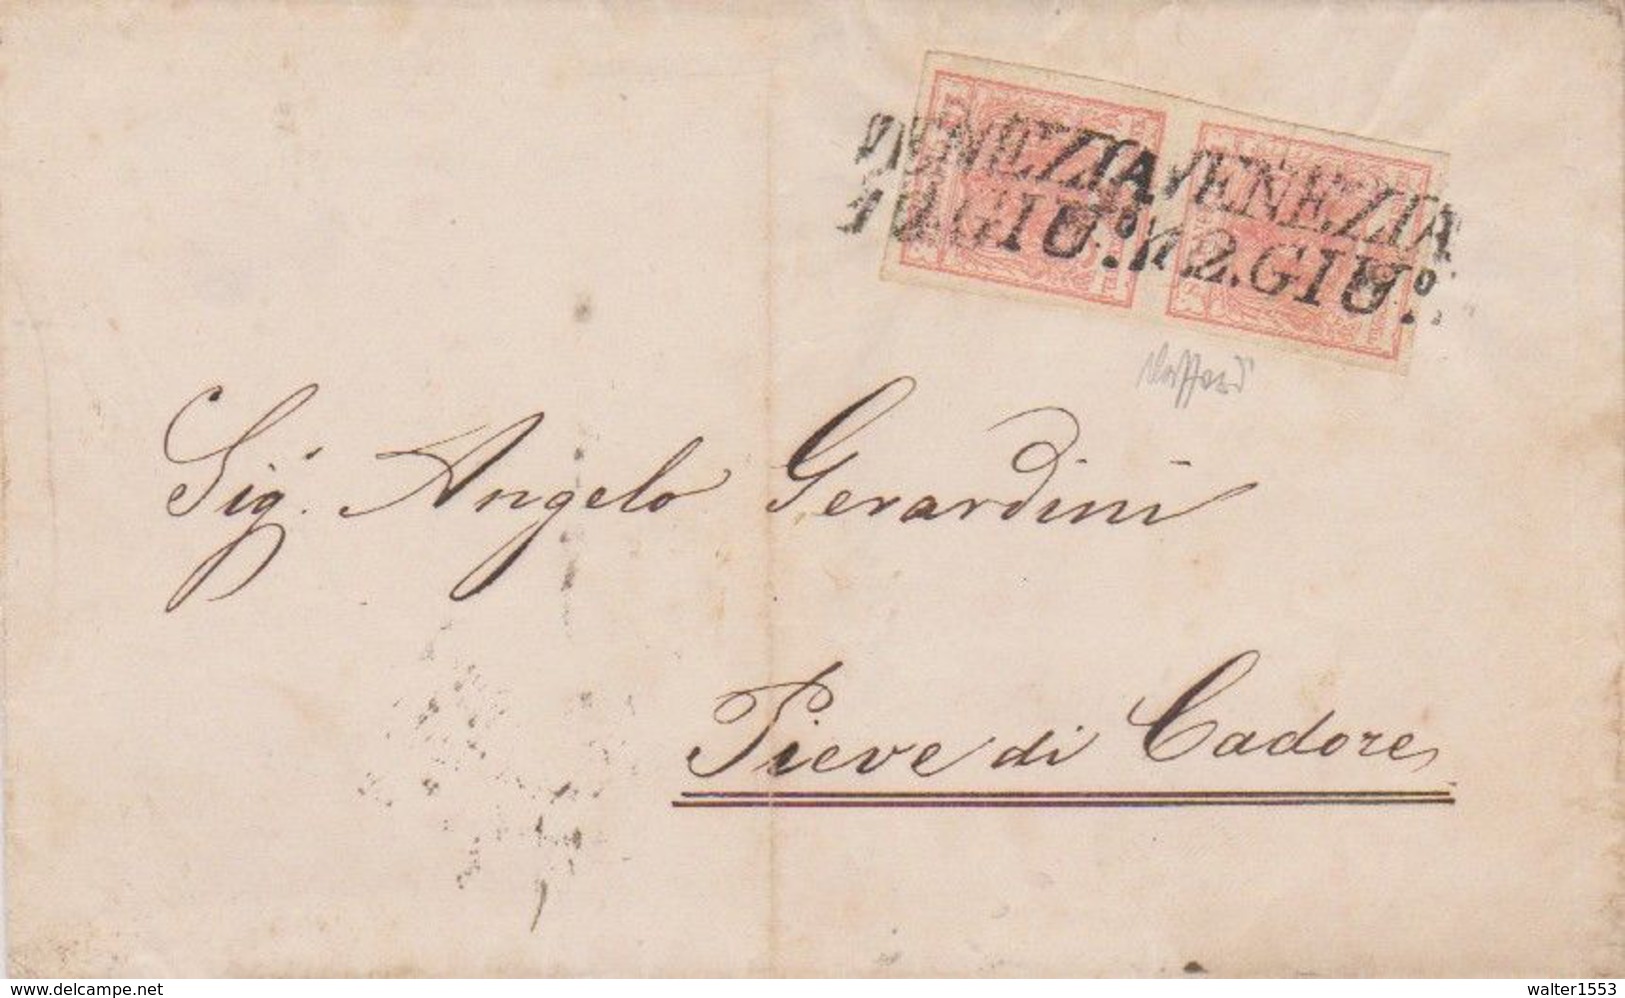 VENEZIA VENEZIA
12.GIU.º 12.GIU.º
Sig.r Angelo Gerardini
Pieve di Cadore
www.delcampe.net
walter1553